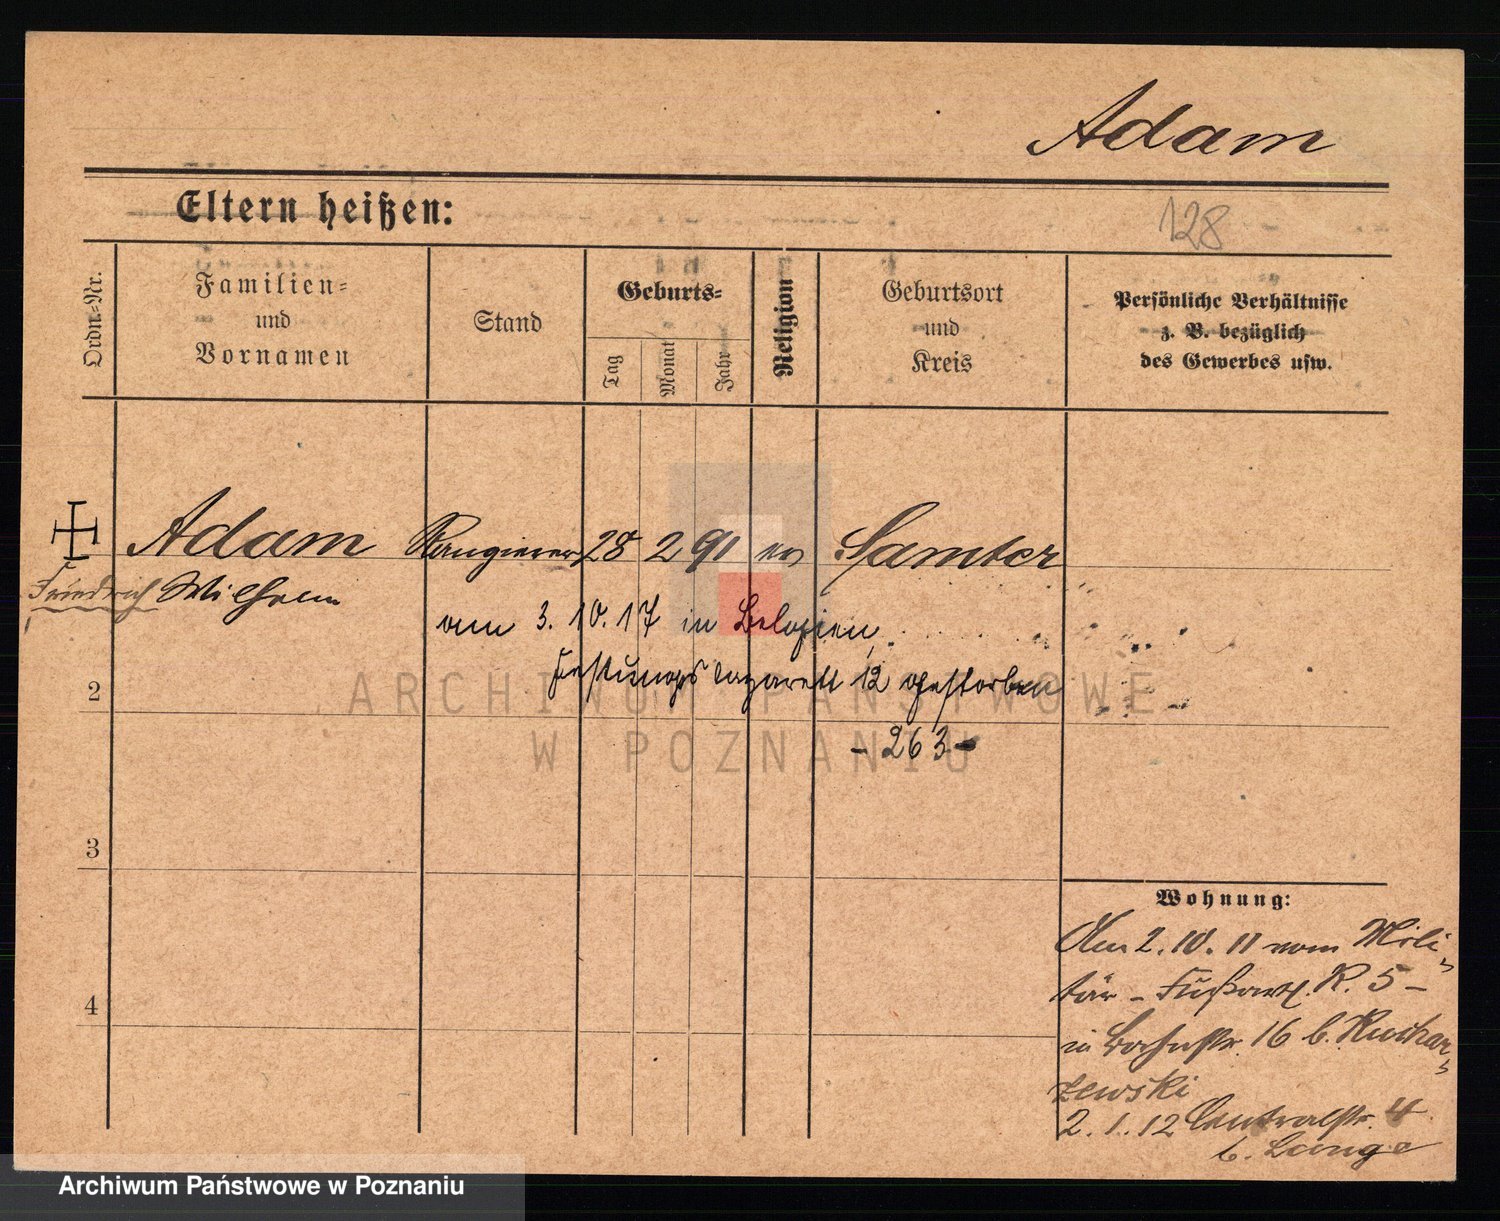 Adam
Eltern heißen:
128
Ordn.-Nr.
Familien-
und
Vornamen
Stand
Geburts-
Tag
Monat
Jahr
Religion
Geburtsort
und
Kreis
Persönliche Verhältnisse
z. B. bezüglich
des Gewerbes usw.
Adam Rangierer 28 2 91 ev Samter
Friedrich Wilhelm
am 3. 10. 17 in Belgien,
Festungslazarett 12 gestorben
2
- 263 -
3
4
Wohnung:
Am 2. 10. 11 vom Mili-
tär - Fußart. R. 5 -
in Bahnstr. 16 b. Kuchar-
zewski
2. 1. 12 Centralstr. 4
b. Lange
ARCHIWUM PAŃSTWOWE
W POZNANIU
Archiwum Państwowe w Poznaniu